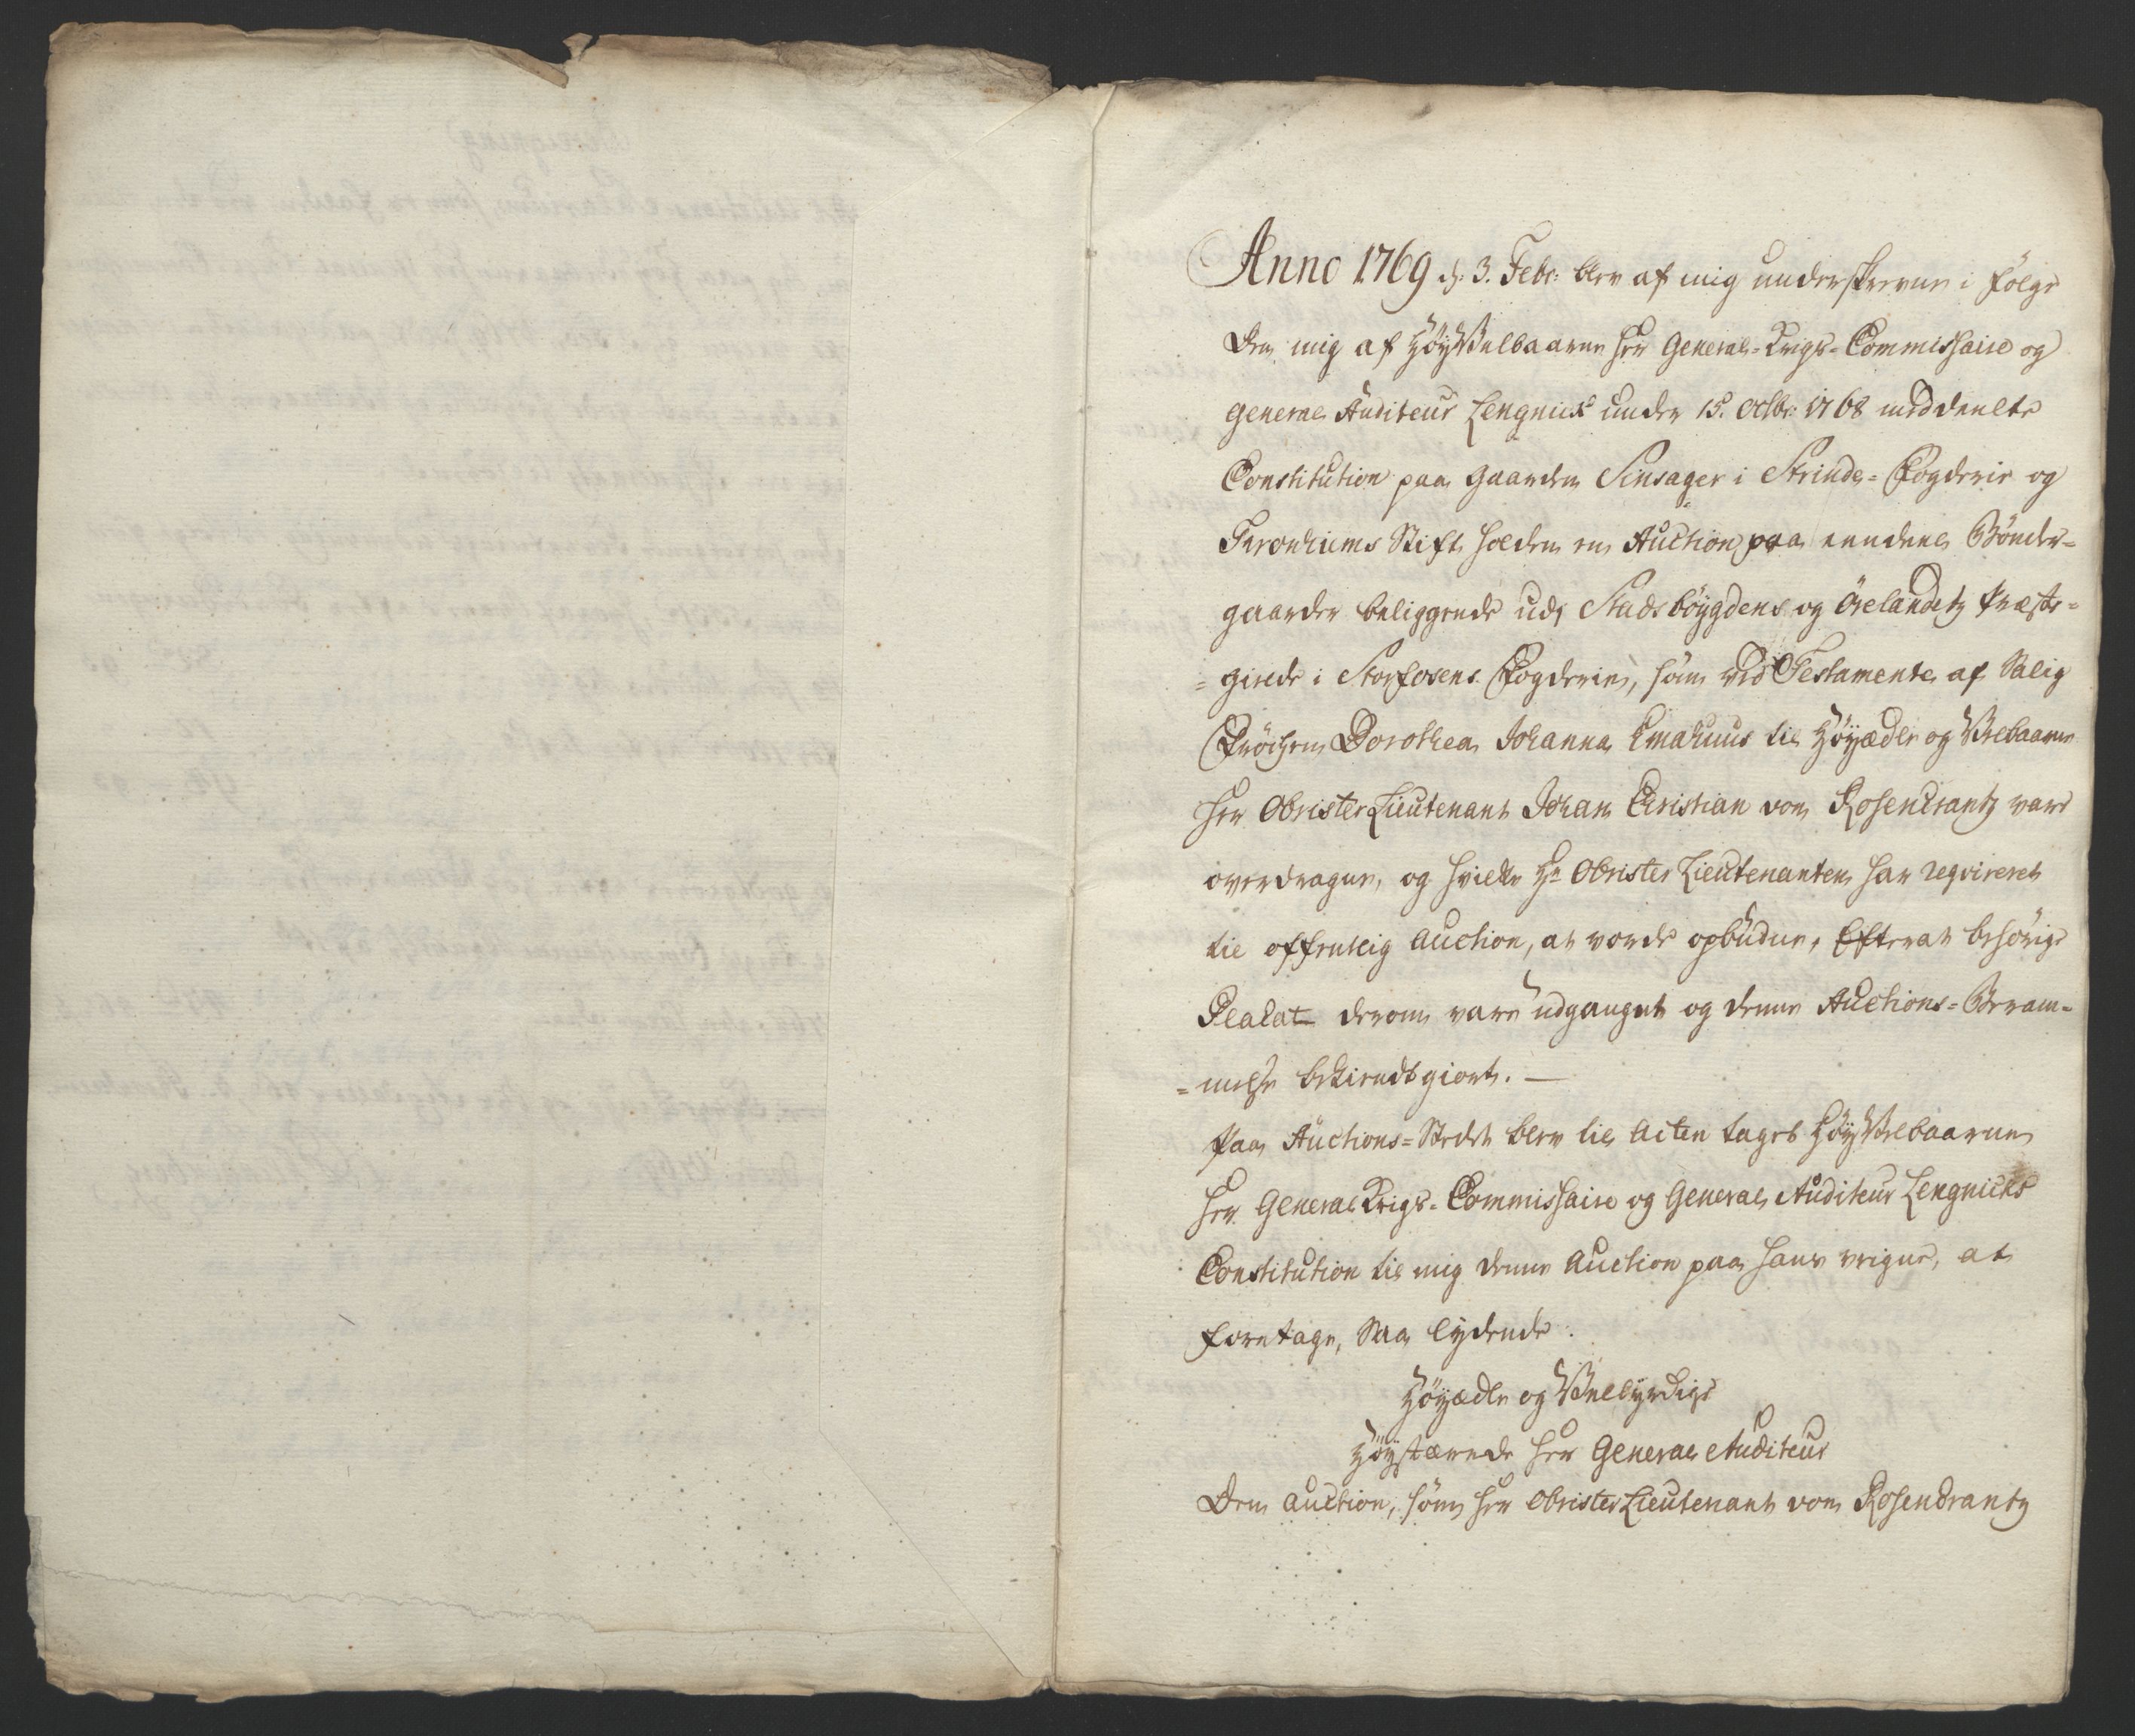 Anno 1769 d. 3. Febr: blev af mig underskrevne i følge
den mig af HøyVelbaarne Herr General-Krigs-Commissaire og
General Auditeur Lengnick under 15. Octbr: 1768 meddeelte
Constitution paa Gaarden Sinsager i Strinde-Fogderie og
Tronhiems Stift holden en Auction paa Bønder-
gaarder beliggende udj Stadsbøygdens og Ørelandetz Præste-
=gield i Storfosens Fogderie, som ved Testamente af Salig
Frøichen Dorothea Johanna til Høyædle og Velbaarne
Herr Obrister Lieutenant Johan Christian von Rosencrantz vare
overdragne, og hvilke Hr Obrister Lieutenanten har reqvireret
til offentlig Auction, at vorde opbudne, Efterat behørige
Placat derom vare udganget og denne Auctions-Beram-
=melse bekiendtgiort. —
Paa Auctions-Stedet blev til Acten taget HøyVelbaarne
Herr General Krigs-Commissaire og General Auditeur Lengnicks
Constitution til mig denne Auction paa hans veigne, at
foretage, Saa lydende:
Høyædle og Velbyrdige
Høystærede Herr General Auditeur
Den Auction, som Herr Obrister Lieutenant von Rosencrantz